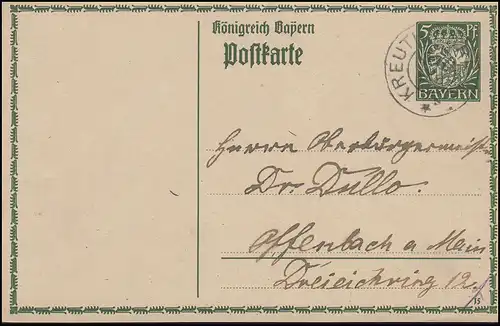 Königreich Bayern
Postkarte
5 Pf
BAYERN
KREUTH
Herrn Oberbürgermeister
Dr. Dullo.
Offenbach a Main
Dreieichring 12.
15